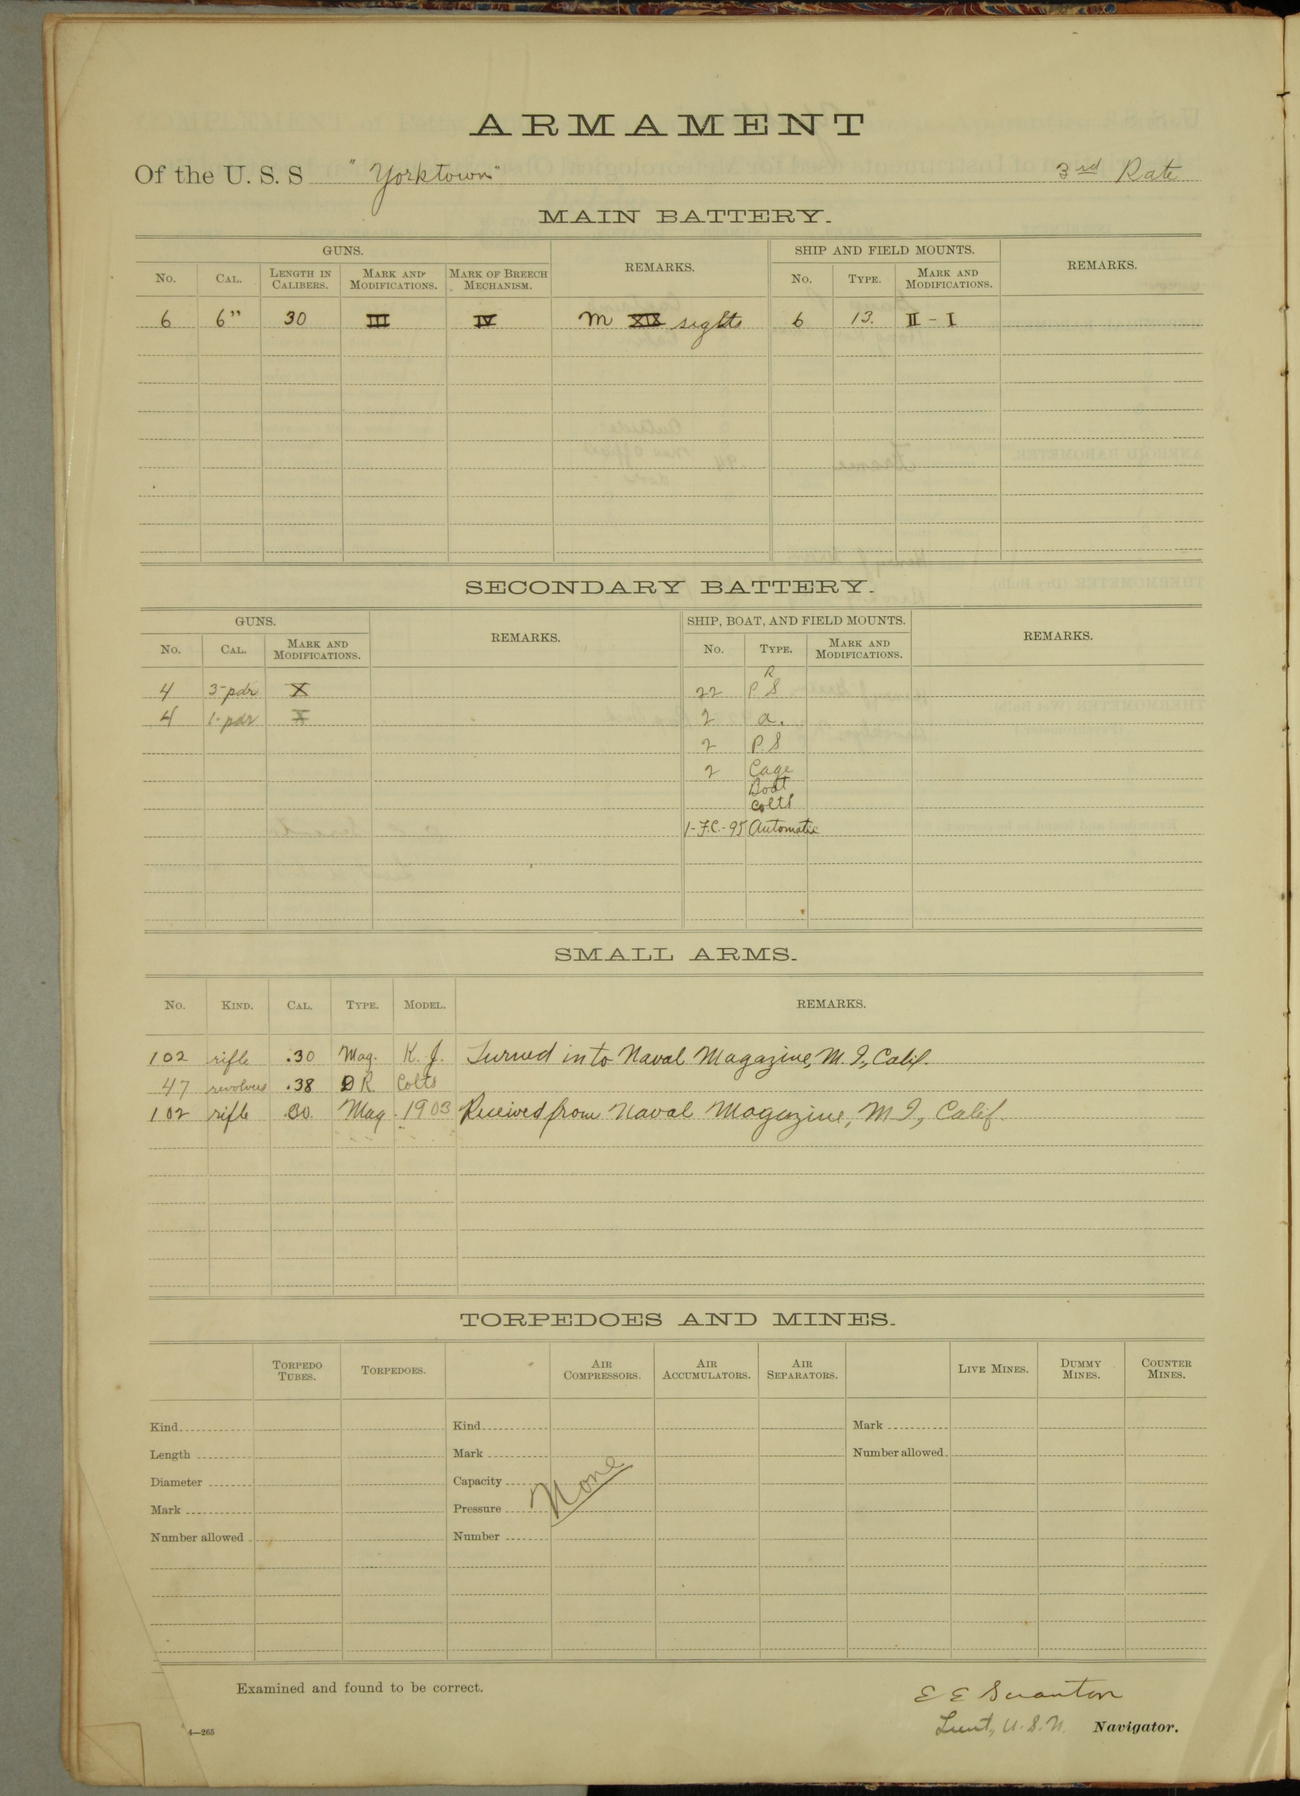 ARMAMENT
Of the U. S. S "Yorktown" 3rd Rate
MAIN BATTERY.
GUNS. REMARKS. SHIP AND FIELD MOUNTS. REMARKS.
No. CAL. LENGTH IN CALIBERS. MARK AND MODIFICATIONS. MARK OF BREECH MECHANISM. No. TYPE. MARK AND MODIFICATIONS.
6 6" 30 III IV M XIX sights 6 13. II - I
SECONDARY BATTERY.
GUNS. REMARKS. SHIP, BOAT, AND FIELD MOUNTS. REMARKS.
No. CAL. MARK AND MODIFICATIONS. No. TYPE. MARK AND MODIFICATIONS.
R
4 3-pdr X 22 P S
4 1-pdr X 2 a.
2 P.S
2 Cage
Boat
Colts
1-F.C.-95 Automatic
SMALL ARMS.
No. KIND. CAL. TYPE. MODEL. REMARKS.
102 rifle .30 Mag. K. J. Turned in to Naval Magazine, M. I, Calif.
47 revolvers .38 D R. Colts
102 rifle 30 Mag. 1903 Received from Naval Magazine, M. I, Calif.
TORPEDOES AND MINES.
TORPEDO TUBES. TORPEDOES. AIR COMPRESSORS. AIR ACCUMULATORS. AIR SEPARATORS. LIVE MINES. DUMMY MINES. COUNTER MINES.
Kind Kind Mark
Length Mark Number allowed
Diameter Capacity None
Mark Pressure
Number allowed Number
Examined and found to be correct.
E E Scranton
Lieut, U. S. N. Navigator.
4—265